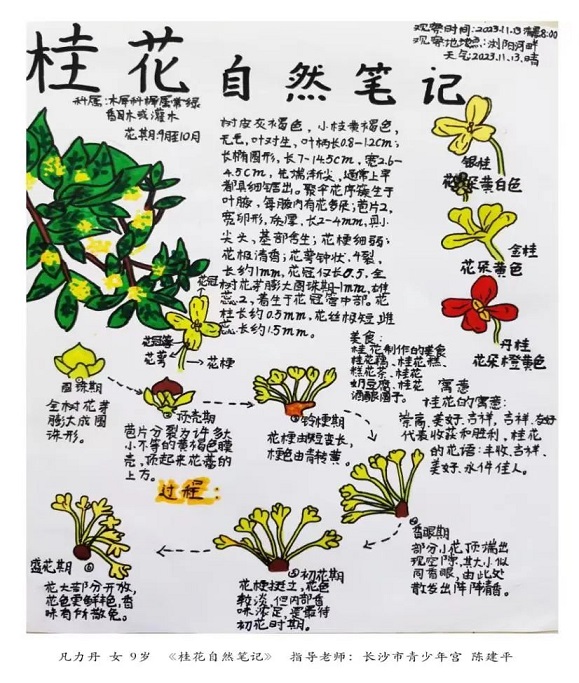 桂花自然笔记
观察时间:2023.11.13 8:00
观察地点:浏阳河畔
天气:2023.11.13.晴
科属:木犀科木犀属常绿
灌木或灌木
花期:9月至10月
树皮灰褐色,小枝黄褐色,
无毛,叶对生,叶柄长0.8-1.2cm;
长椭圆形,长7-14.5cm,宽2.6-
4.5cm,先端渐尖,通常上半
部具细锯齿。聚伞花序簇生于
叶腋,每腋内有花多朵;苞片2,
宽卵形,质厚,长2-4mm,具小
尖头,基部合生;花梗细弱;
花极清香;花萼钟状,4裂,
长约1mm,花冠仅长0.5,全
树花芽膨大圆珠期1mm,雄
蕊2,着生于花冠管中部。花
柱长约0.5mm,花丝极短,雌
蕊长约1.5mm。
银桂
花朵黄白色
金桂
花朵黄色
丹桂
花朵橙黄色
花冠
花冠管
花萼
花梗
美食:
桂花制作的美食
桂花糕、桂花
糕花茶、桂花
奶豆腐、桂花
酒酿圆子。
寓意
桂花的寓意:
崇高、美好、吉祥,吉祥、友好
代表收获和胜利,桂花
的花语:丰收、吉祥、
美好、永伴佳人。
圆珠期
全树花芽
膨大成圆
珠形。
②顶壳期
苞片分裂为许多大
小不等的黄褐色膜
壳,顶起来花蕾的
上方。
③铃梗期
花梗由短变长,
梗色由青转黄。
过程:
④香眼期
部分小花顶端出
现空隙,其大小似
同香眼,由此处
散发出阵阵清香。
⑤初花期
花梗挺立,花色
较淡,但内部香
味浓足,是最待
初花时期。
盛花期⑥
花大部分开放,
花色更鲜艳,香
味有所散免。
凡力丹 女 9岁 《桂花自然笔记》 指导老师:长沙市青少年宫 陈建平